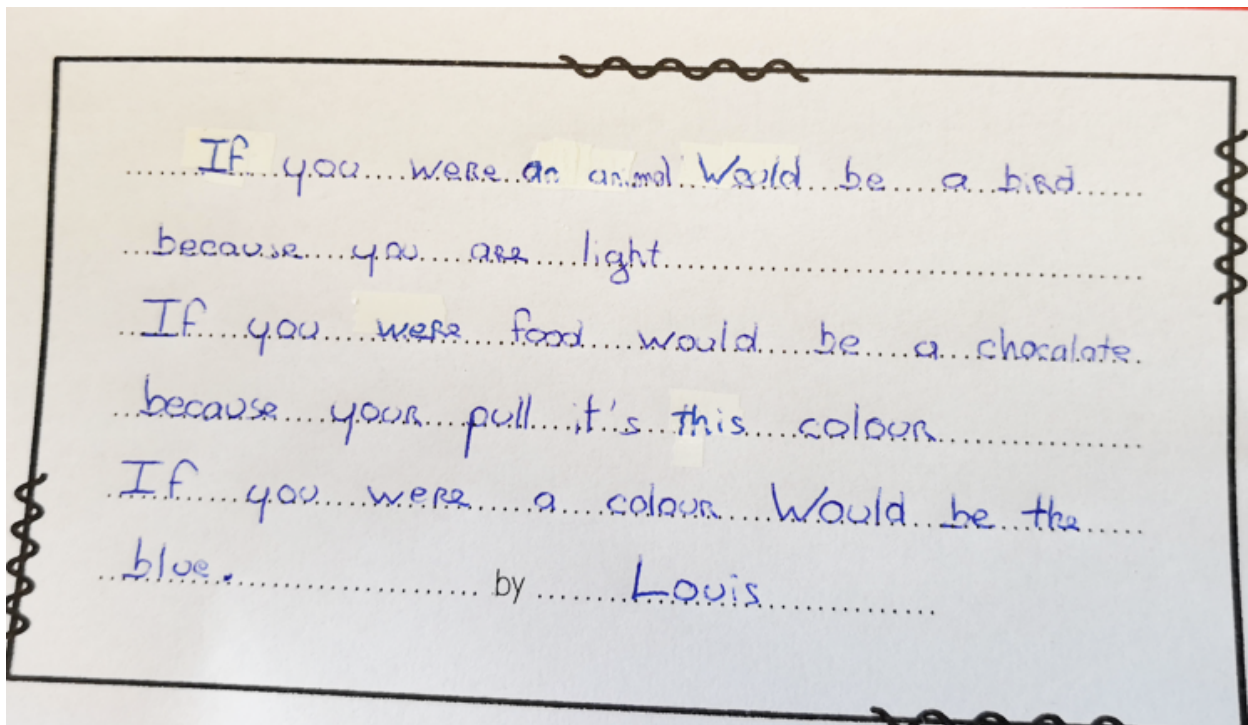 If you were an animal Would be a bird
because you are light
If you were food would be a chocalate
because your pull it's this colour
If you were a colour Would be the
blue. by Louis